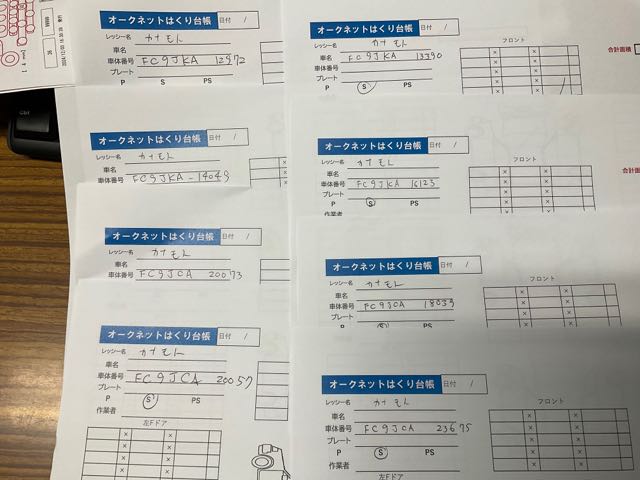 オークネットはくり台帳 日付 /
レッシー名 カナモト
車名
車体番号 FC9JKA 12972
プレート
P S PS
オークネットはくり台帳 日付 /
レッシー名 カナモト
車名
車体番号 FC9JKA-14049
オークネットはくり台帳 日付 /
レッシー名 カナモト
車名
車体番号 FC9JCA 20073
オークネットはくり台帳 日付 /
レッシー名 カナモト
車名
車体番号 FC9JCA 20057
プレート
P S PS
作業者
左Fドア
オークネットはくり台帳 日付 /
フロント
レッシー名 カナモト
車名
車体番号 FC9JKA 13390
プレート
P S PS
合計面積
オークネットはくり台帳 日付 /
フロント
レッシー名 カナモト
車名
車体番号 FC9JKA 16125
プレート
P S PS
作業者
合計面
オークネットはくり台帳 日付 /
フロント
レッシー名 カナモト
車名
車体番号 FC9JCA 18039
プレート
P S PS
オークネットはくり台帳 日付 /
フロント
レッシー名 カナモト
車名
車体番号 FC9JCA 23675
プレート
P S PS
作業者
左Fドア